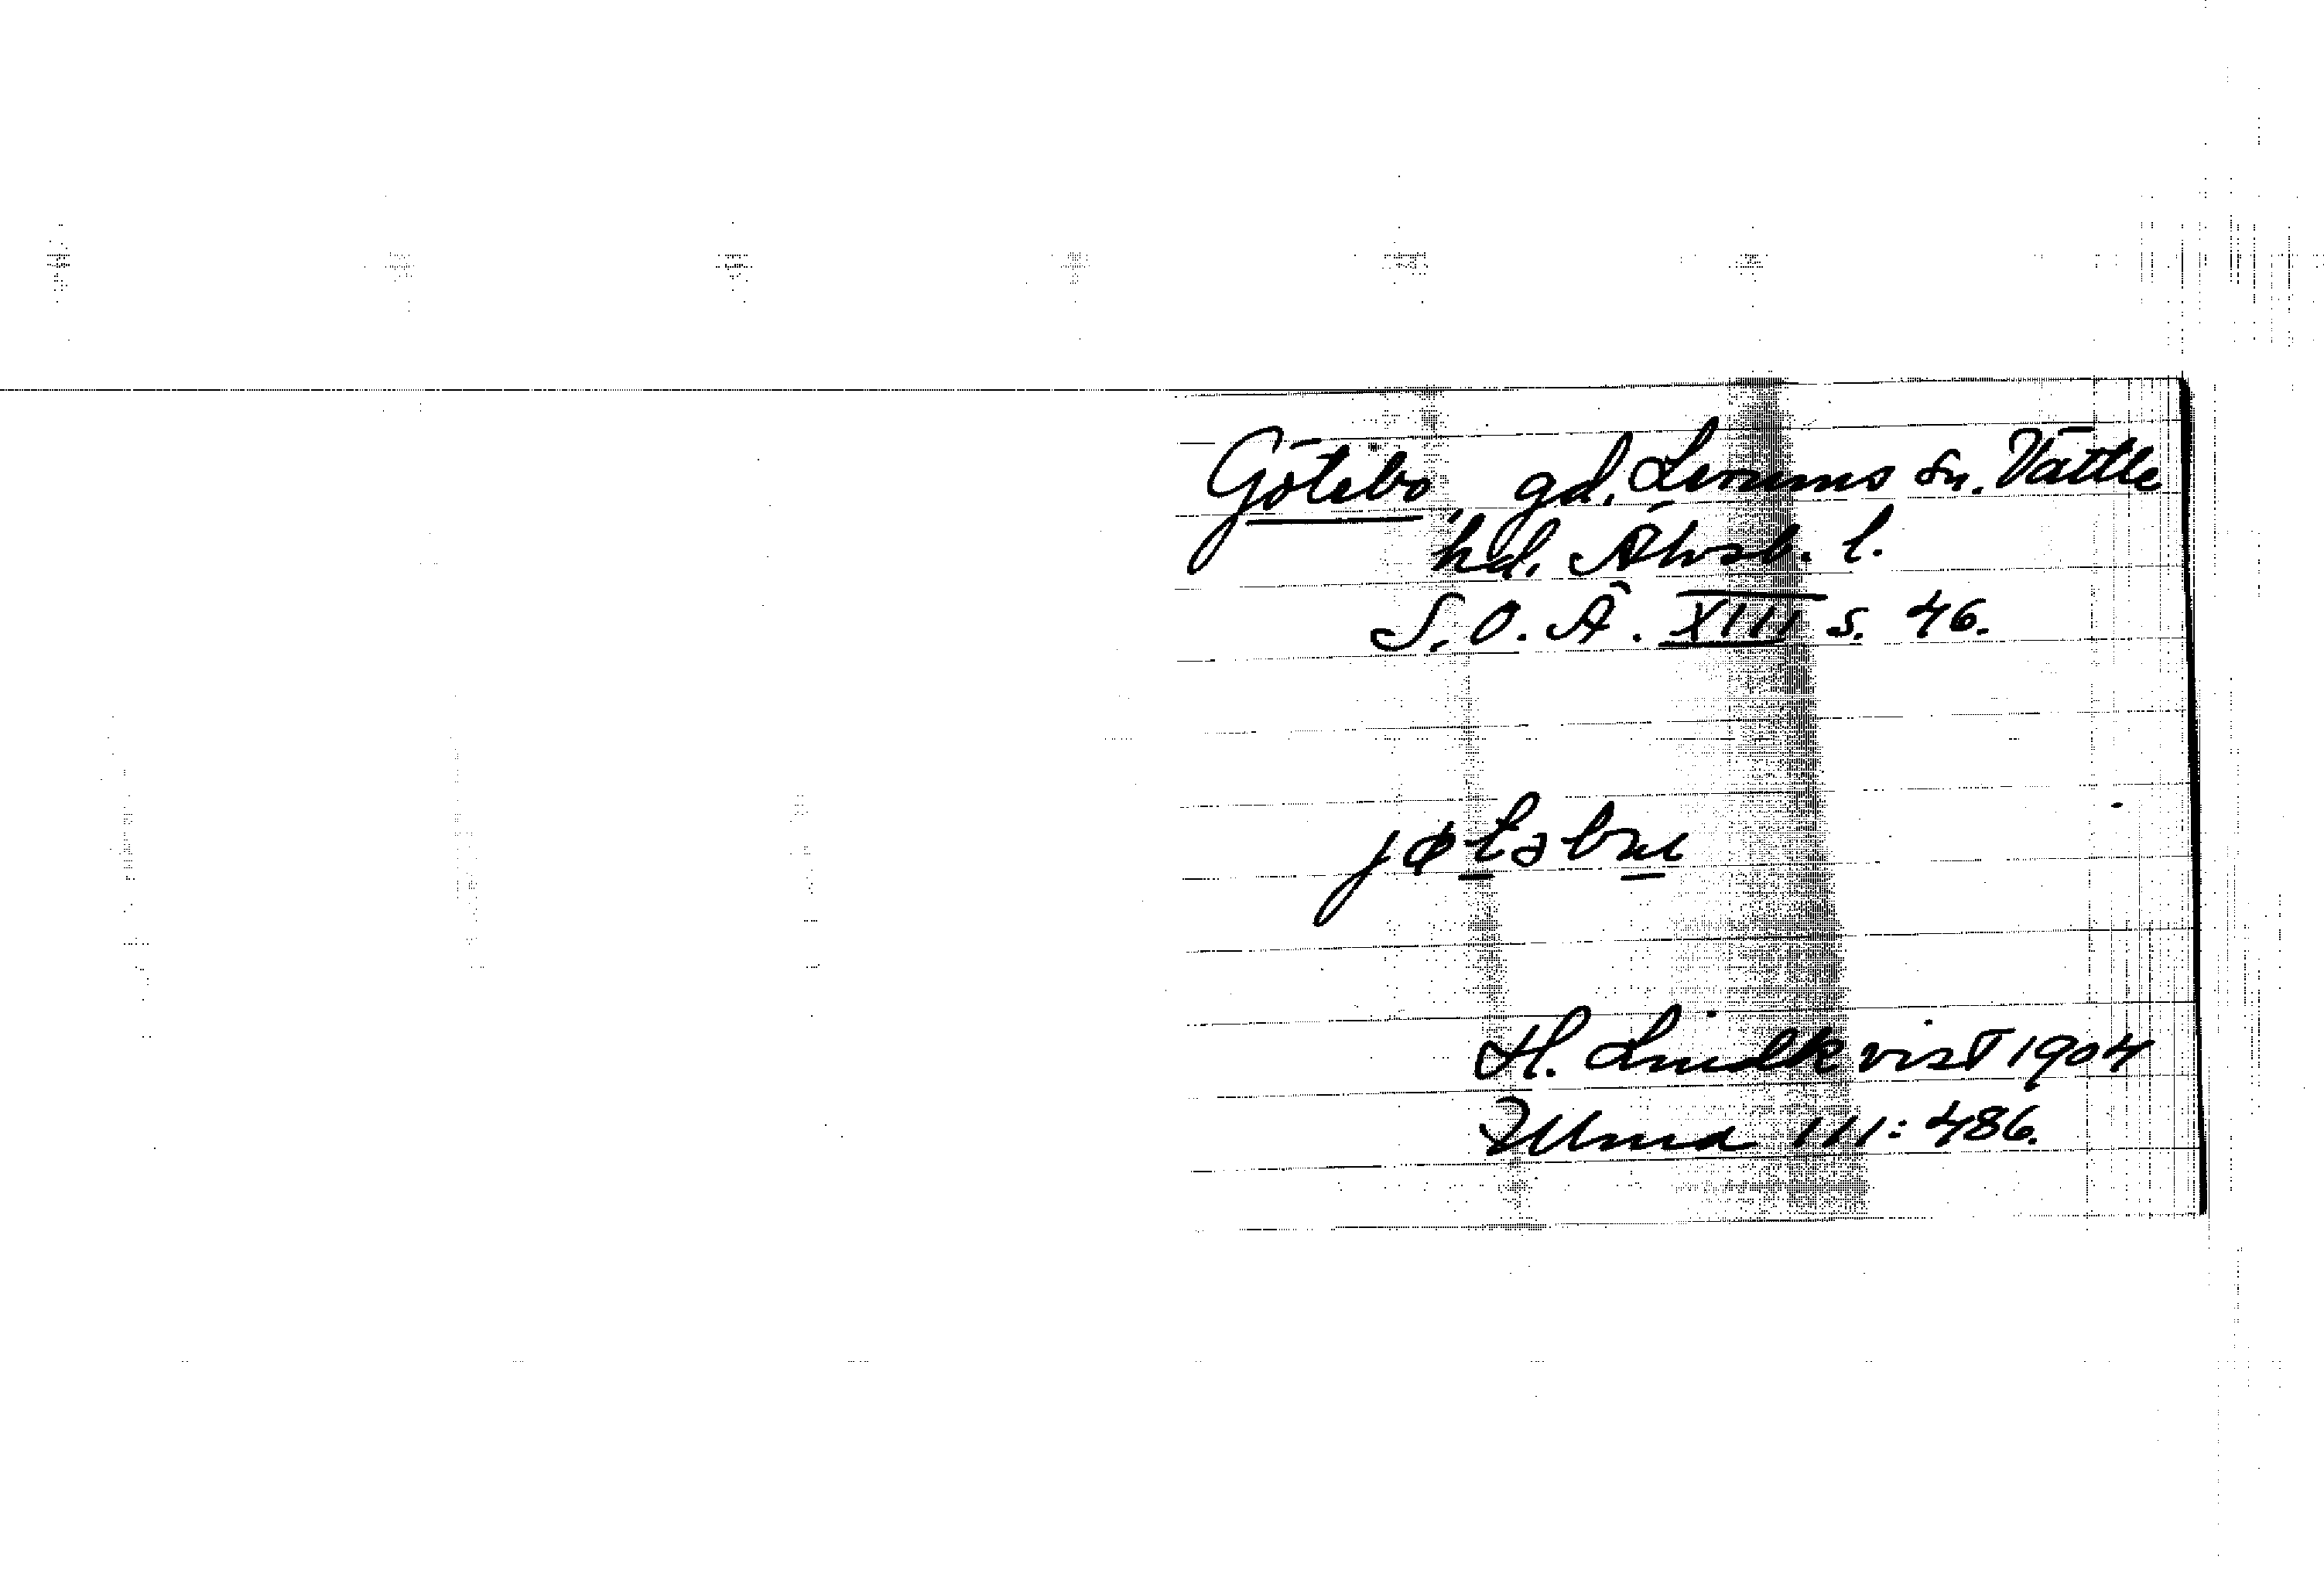 Götebo, gd. Lerums sn. Vättle
hd. Älvsb. l.
S. O. Ä. XIII s. 46.
H. Lindkvist 1904
Ulma III: 486.